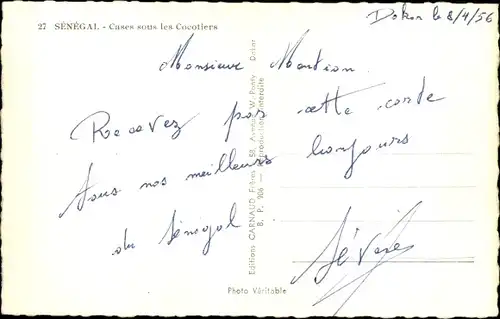 27 SÉNÉGAL - Cases sous les Cocotiers
Dakar le 8/4/56
Monsieur
Recevez par cette carte
Tous nos meilleurs bonjours
du Sénégal
Editions CARNAUD Frères 51, Avenue W. Ponty Dakar
B. P. 206 — Reproduction interdite
Photo Véritable